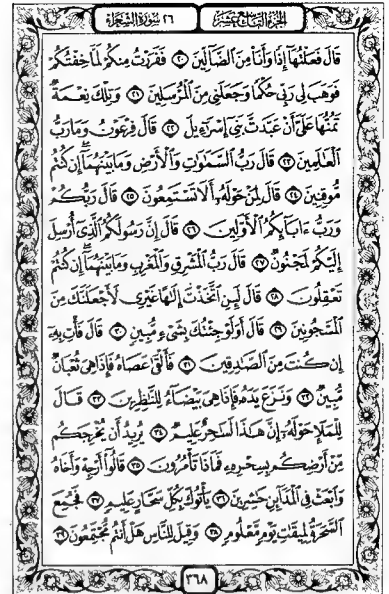 الجزء التاسع عشر
٢٦ سورة الشعراء
قَالَ فَعَلْتُهَآ إِذًا وَأَنَا۠ مِنَ ٱلضَّآلِّينَ ٢٠ فَفَرَرْتُ مِنكُمْ لَمَّا خِفْتُكُمْ
فَوَهَبَ لِى رَبِّى حُكْمًا وَجَعَلَنِى مِنَ ٱلْمُرْسَلِينَ ٢١ وَتِلْكَ نِعْمَةٌ
تَمُنُّهَا عَلَىَّ أَنْ عَبَّدتَّ بَنِىٓ إِسْرَٰٓءِيلَ ٢٢ قَالَ فِرْعَوْنُ وَمَا رَبُّ
ٱلْعَٰلَمِينَ ٢٣ قَالَ رَبُّ ٱلسَّمَٰوَٰتِ وَٱلْأَرْضِ وَمَا بَيْنَهُمَآ ۖ إِن كُنتُم
مُّوقِنِينَ ٢٤ قَالَ لِمَنْ حَوْلَهُۥٓ أَلَا تَسْتَمِعُونَ ٢٥ قَالَ رَبُّكُمْ
وَرَبُّ ءَابَآئِكُمُ ٱلْأَوَّلِينَ ٢٦ قَالَ إِنَّ رَسُولَكُمُ ٱلَّذِىٓ أُرْسِلَ
إِلَيْكُمْ لَمَجْنُونٌ ٢٧ قَالَ رَبُّ ٱلْمَشْرِقِ وَٱلْمَغْرِبِ وَمَا بَيْنَهُمَآ ۖ إِن كُنتُمْ
تَعْقِلُونَ ٢٨ قَالَ لَئِنِ ٱتَّخَذْتَ إِلَٰهًا غَيْرِى لَأَجْعَلَنَّكَ مِنَ
ٱلْمَسْجُونِينَ ٢٩ قَالَ أَوَلَوْ جِئْتُكَ بِشَىْءٍ مُّبِينٍ ٣٠ قَالَ فَأْتِ بِهِۦٓ
إِن كُنتَ مِنَ ٱلصَّٰدِقِينَ ٣١ فَأَلْقَىٰ عَصَاهُ فَإِذَا هِىَ ثُعْبَانٌ
مُّبِينٌ ٣٢ وَنَزَعَ يَدَهُۥ فَإِذَا هِىَ بَيْضَآءُ لِلنَّٰظِرِينَ ٣٣ قَالَ
لِلْمَلَإِ حَوْلَهُۥٓ إِنَّ هَٰذَا لَسَٰحِرٌ عَلِيمٌ ٣٤ يُرِيدُ أَن يُخْرِجَكُم
مِّنْ أَرْضِكُم بِسِحْرِهِۦ فَمَاذَا تَأْمُرُونَ ٣٥ قَالُوٓا۟ أَرْجِهْ وَأَخَاهُ
وَٱبْعَثْ فِى ٱلْمَدَآئِنِ حَٰشِرِينَ ٣٦ يَأْتُوكَ بِكُلِّ سَحَّارٍ عَلِيمٍ ٣٧ فَجُمِعَ
ٱلسَّحَرَةُ لِمِيقَٰتِ يَوْمٍ مَّعْلُومٍ ٣٨ وَقِيلَ لِلنَّاسِ هَلْ أَنتُم مُّجْتَمِعُونَ ٣٩
٣٦٨